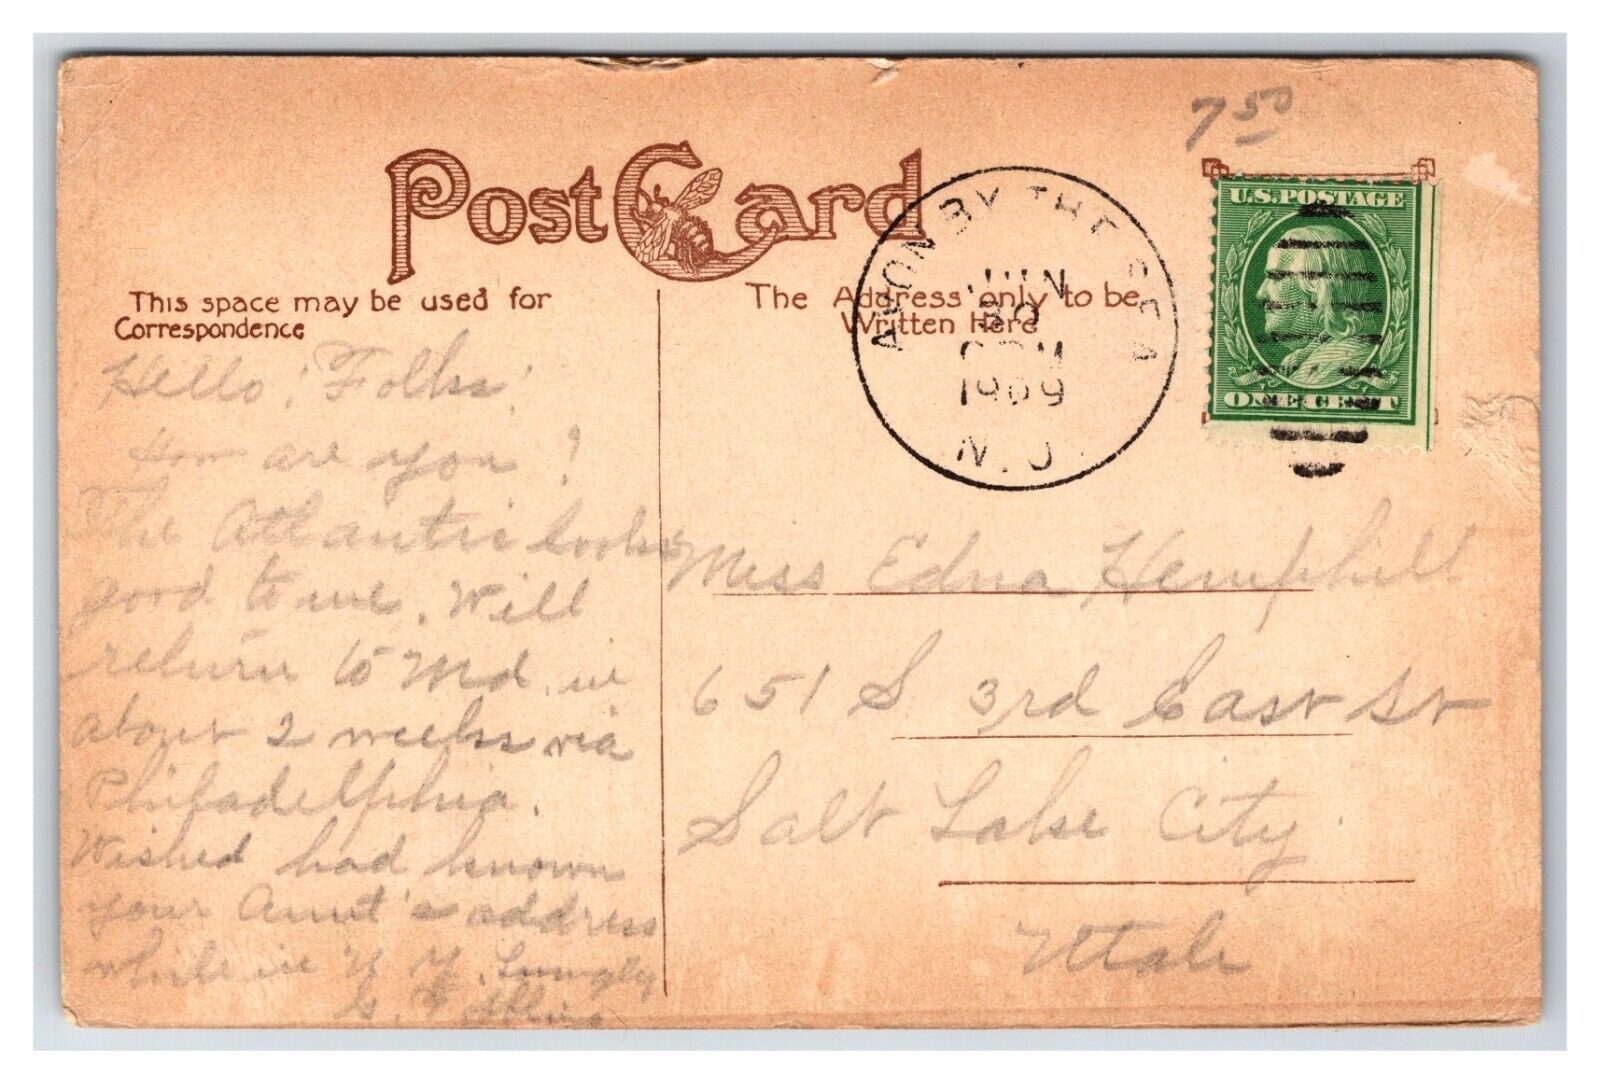 7 50
Post Card
U.S. POSTAGE
ONE CENT
AVON BY THE SEA
JUN
30
1909
N.J.
This space may be used for
Correspondence
The Address only to be
Written Here
Hello! Folks!
How are you!
The Atlantic looks
good to me. Will
return to Md. in
about 2 weeks via
Philadelphia.
Wished had known
your Aunt's address
while in N.Y.
Miss Edna Hemphill
651 S 3rd East St
Salt Lake City.
Utah